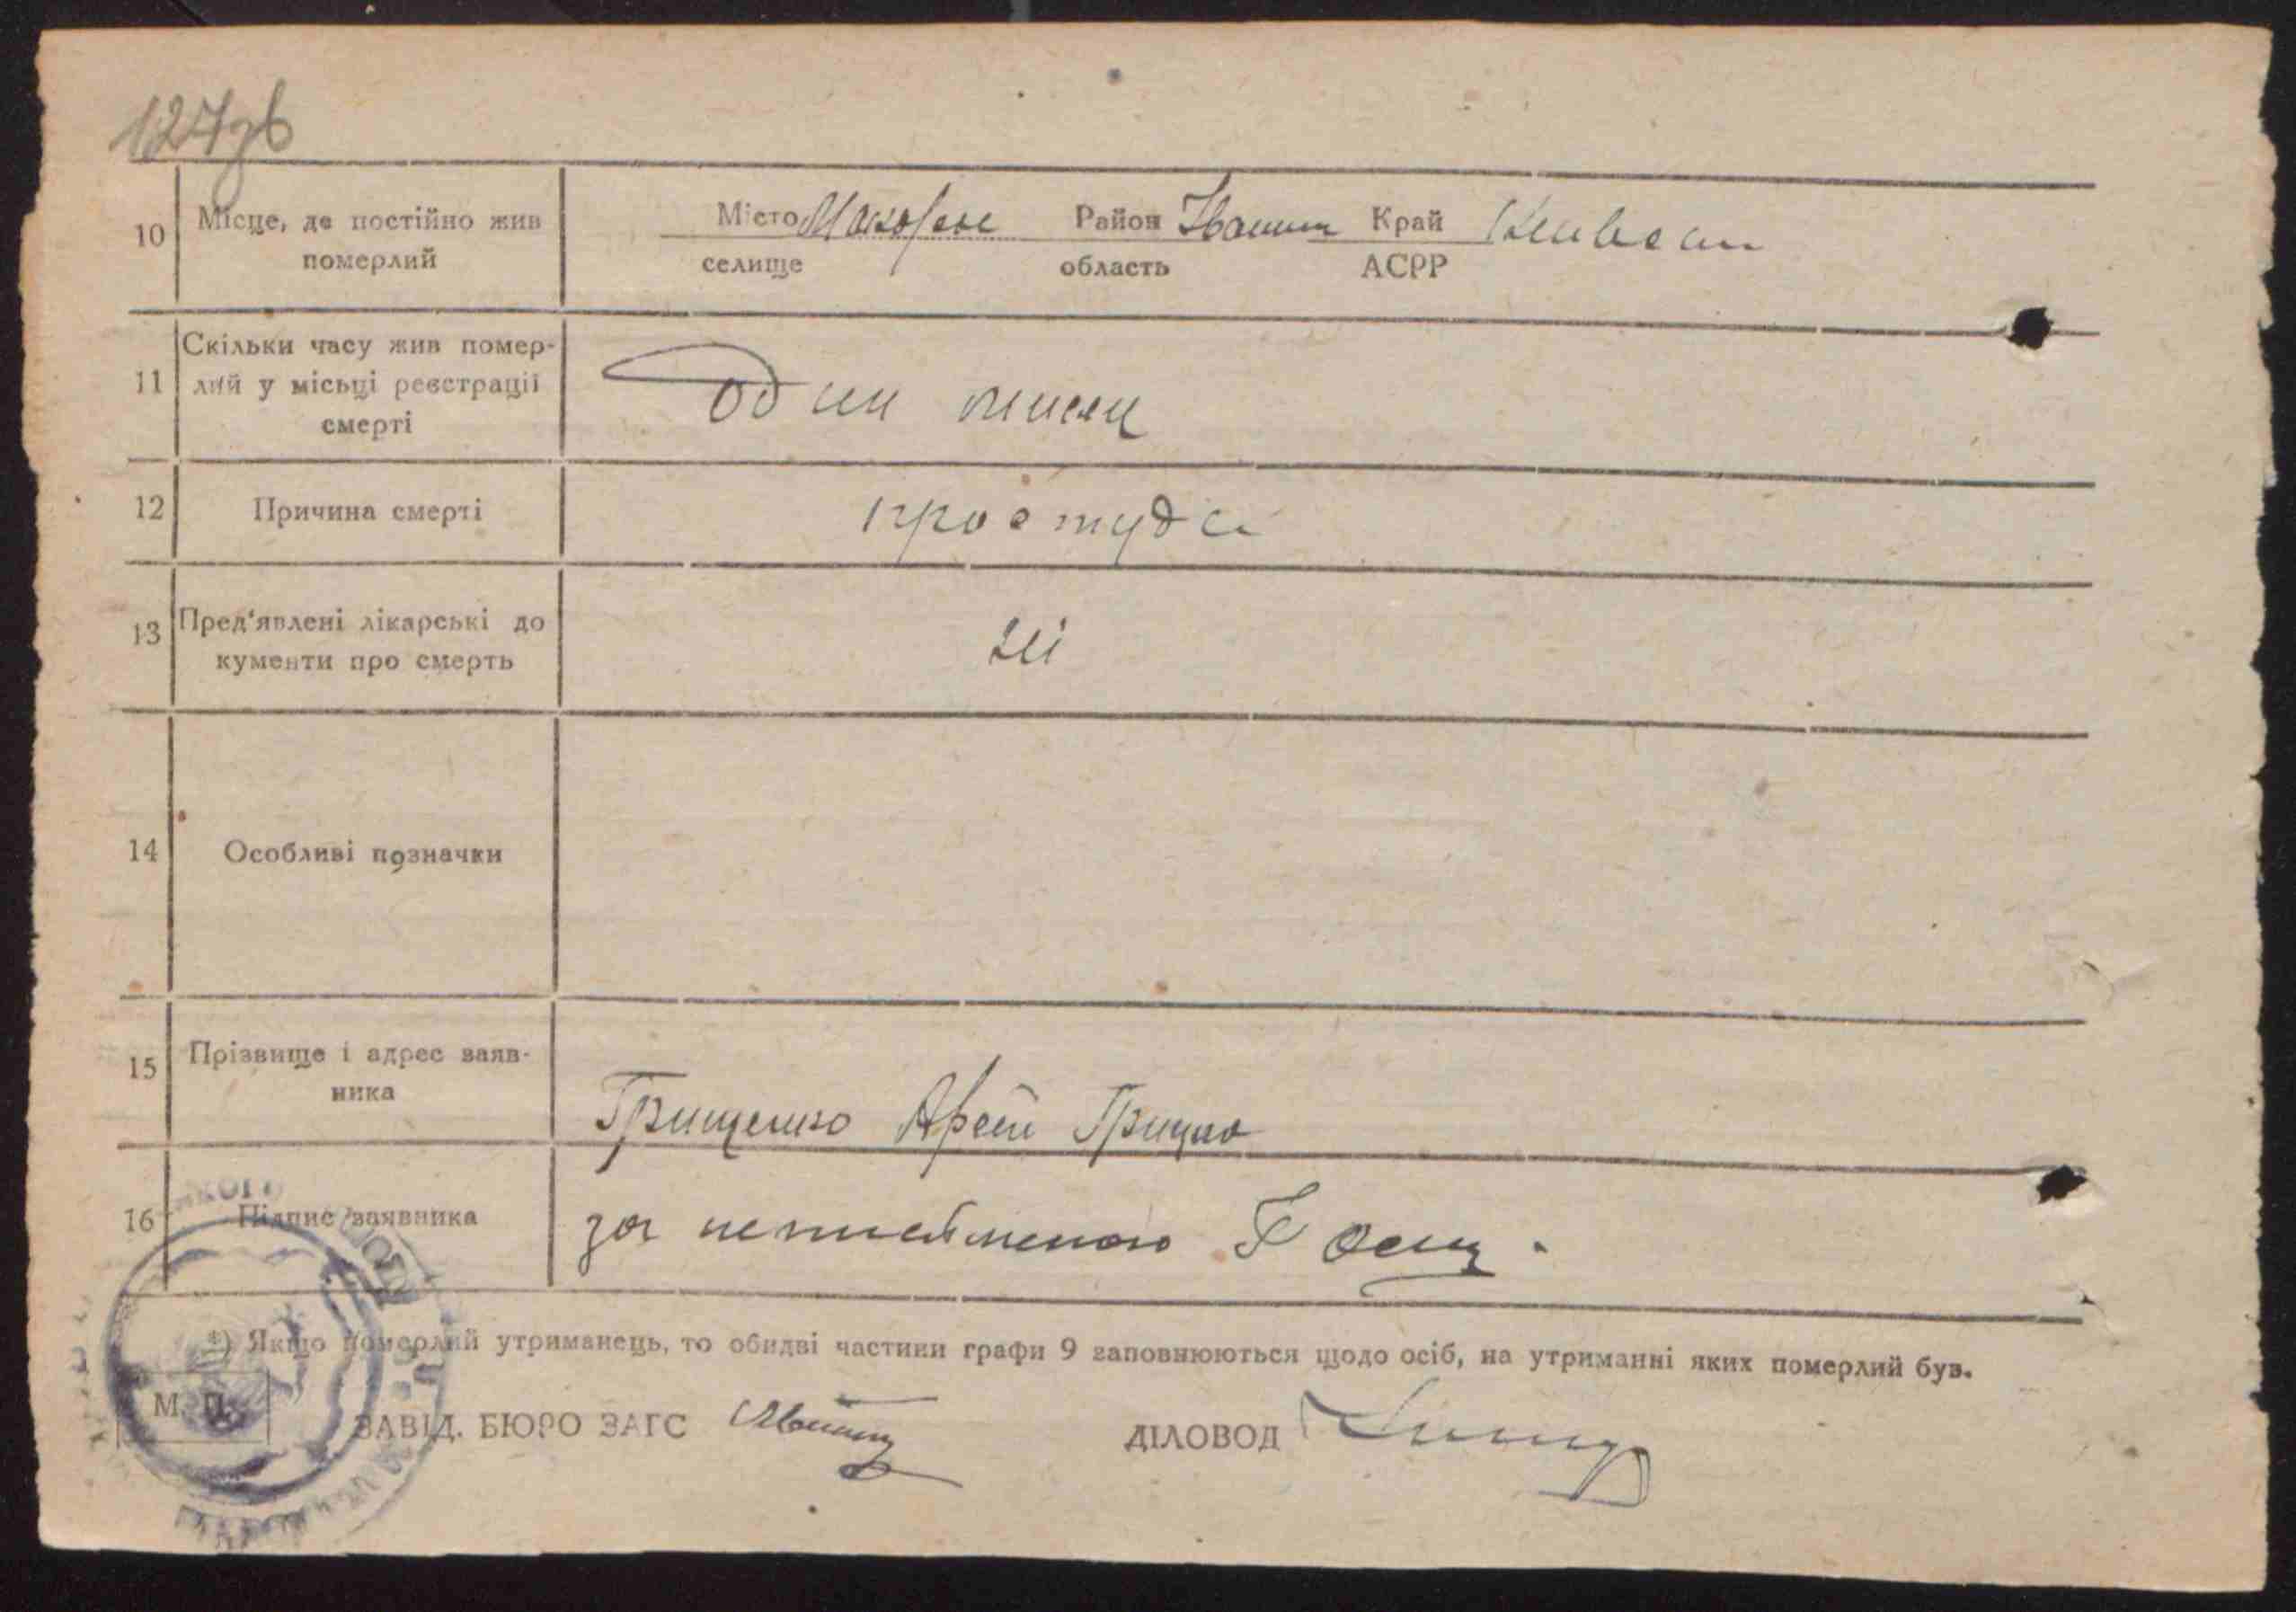 127зв
10 Місце, де постійно жив
померлий
Місто Район Іванків Край Київськ
селище область АСРР
11 Скільки часу жив помер-
лий у місьці реєстрації
смерті
Один
12 Причина смерті простуда
13 Пред'явлені лікарські до
кументи про смерть
ні
14 Особливі позначки
15 Прізвище і адрес заяв-
ника
Грищенко
16 Підпис заявника за неписьменого
*) Якщо померлий утриманець, то обидві частини графи 9 заповнюються щодо осіб, на утриманні яких померлий був.
М. П.
ЗАВІД. БЮРО ЗАГС ДІЛОВОД